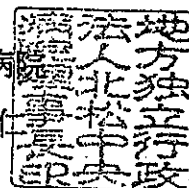 地方独立行政
法人北松中央
病院理事長之印
病院